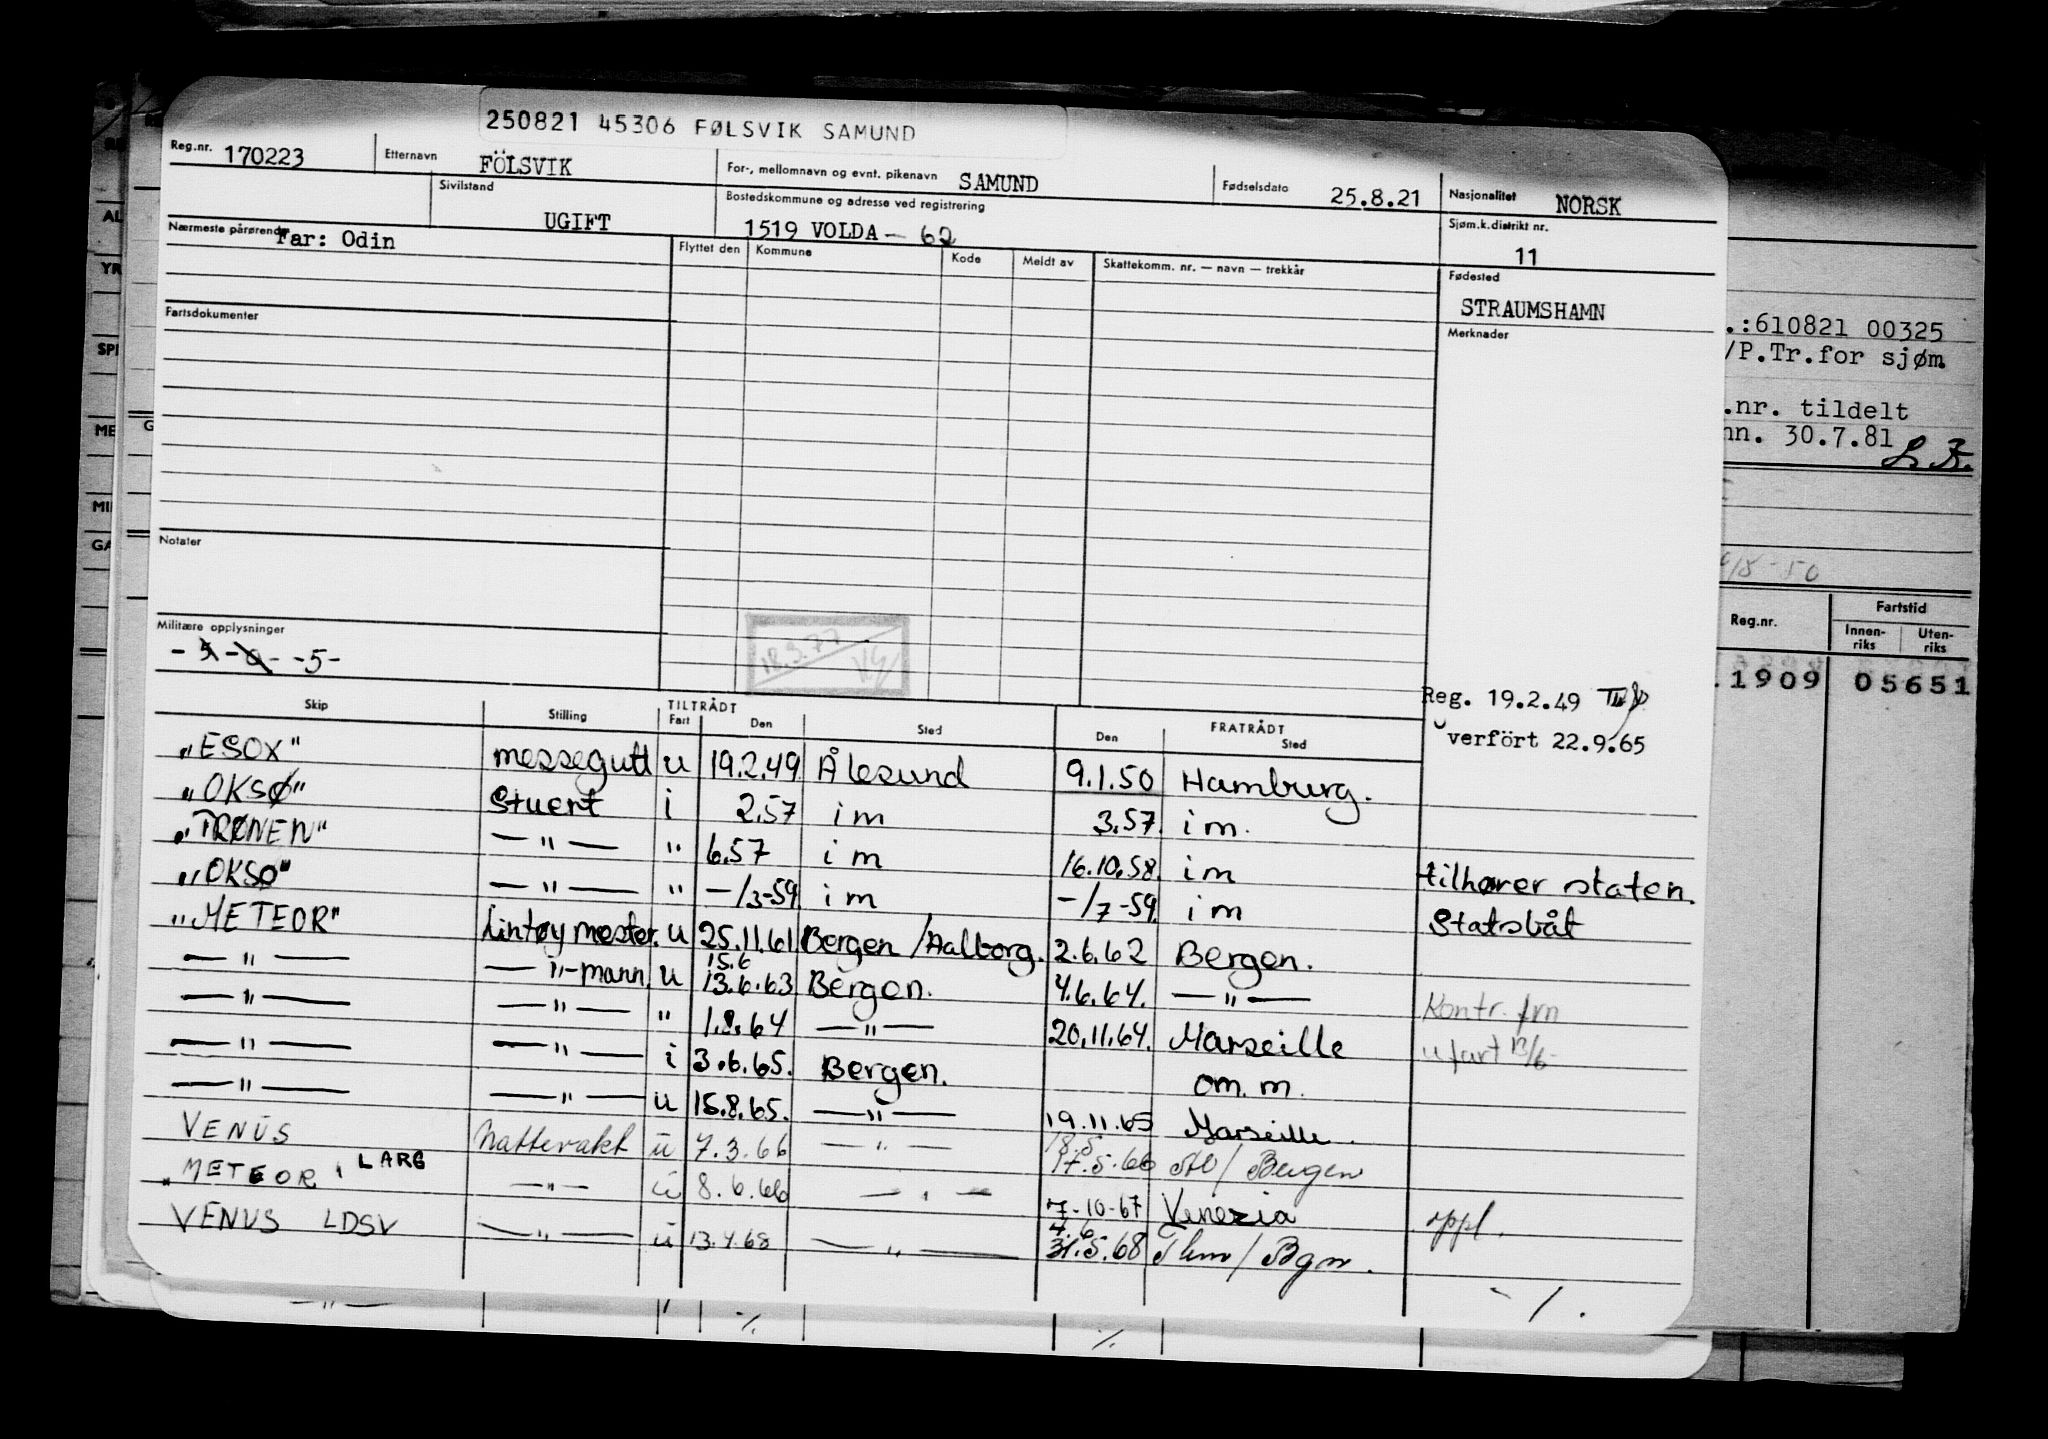 250821 45306 FØLSVIK SAMUND
Reg.nr. 170223 Etternavn FÖLSVIK For-, mellomnavn og evnt. pikenavn SAMUND Fødselsdato 25.8.21 Nasjonalitet NORSK
Sivilstand UGIFT Bostedskommune og adresse ved registrering 1519 VOLDA - 62 Sjøm.k.distrikt nr. 11
Nærmeste pårørende Far: Odin Flyttet den Kommune Kode Meldt av Skattekomm. nr. — navn — trekkår Fødested STRAUMSHAMN
Fartsdokumenter Merknader
Notater
Militære opplysninger
-5-
18.3.77
Reg. 19.2.49
overført 22.9.65
Skip Stilling TILTRÅDT Fart Den Sted FRATRÅDT Den Sted
"ESOX" messegutt u 19.2.49 Ålesund 9.1.50 Hamburg.
"OKSØ" Stuert i 2.57 i m 3.57. i m.
"TRØNEN" — " — " 6.57 i m 16.10.58. i m tilhører staten.
"OKSØ" — " — " -/3-59. i m -/7-59. i m Statsbåt
"METEOR" Lintøymester. u 25.11.61 Bergen/Aalborg. 2.6.62 Bergen.
— " — — " -mann. u 15.6 13.6.63 Bergen. 4.6.64. — " — Kontr. frn
— " — — " — " 1.8.64 — " — 20.11.64. Marseille u fart 13/6-
— " — — " — i 3.6.65. Bergen. om. m.
— " — — " — u 15.8.65. — " — 19.11.65 Marseille.
VENUS Nattevakt u 7.3.66 — " — 18.5 17.5.66 / Bergen
METEOR, LARG — " — u 8.6.66 — " — 7-10-67 Venezia oppl.
VENUS LDSV — " — u 13.4.68 — " — 4.6 31.5.68 / Bgn.
-/.
.:610821 00325
/P.Tr.for sjøm.
.nr. tildelt
nn. 30.7.81
Reg.nr. Fartstid
Innen-riks Uten-riks
.1909 05651
AL
YR
SPR
ME
G
MI
GA
— " —